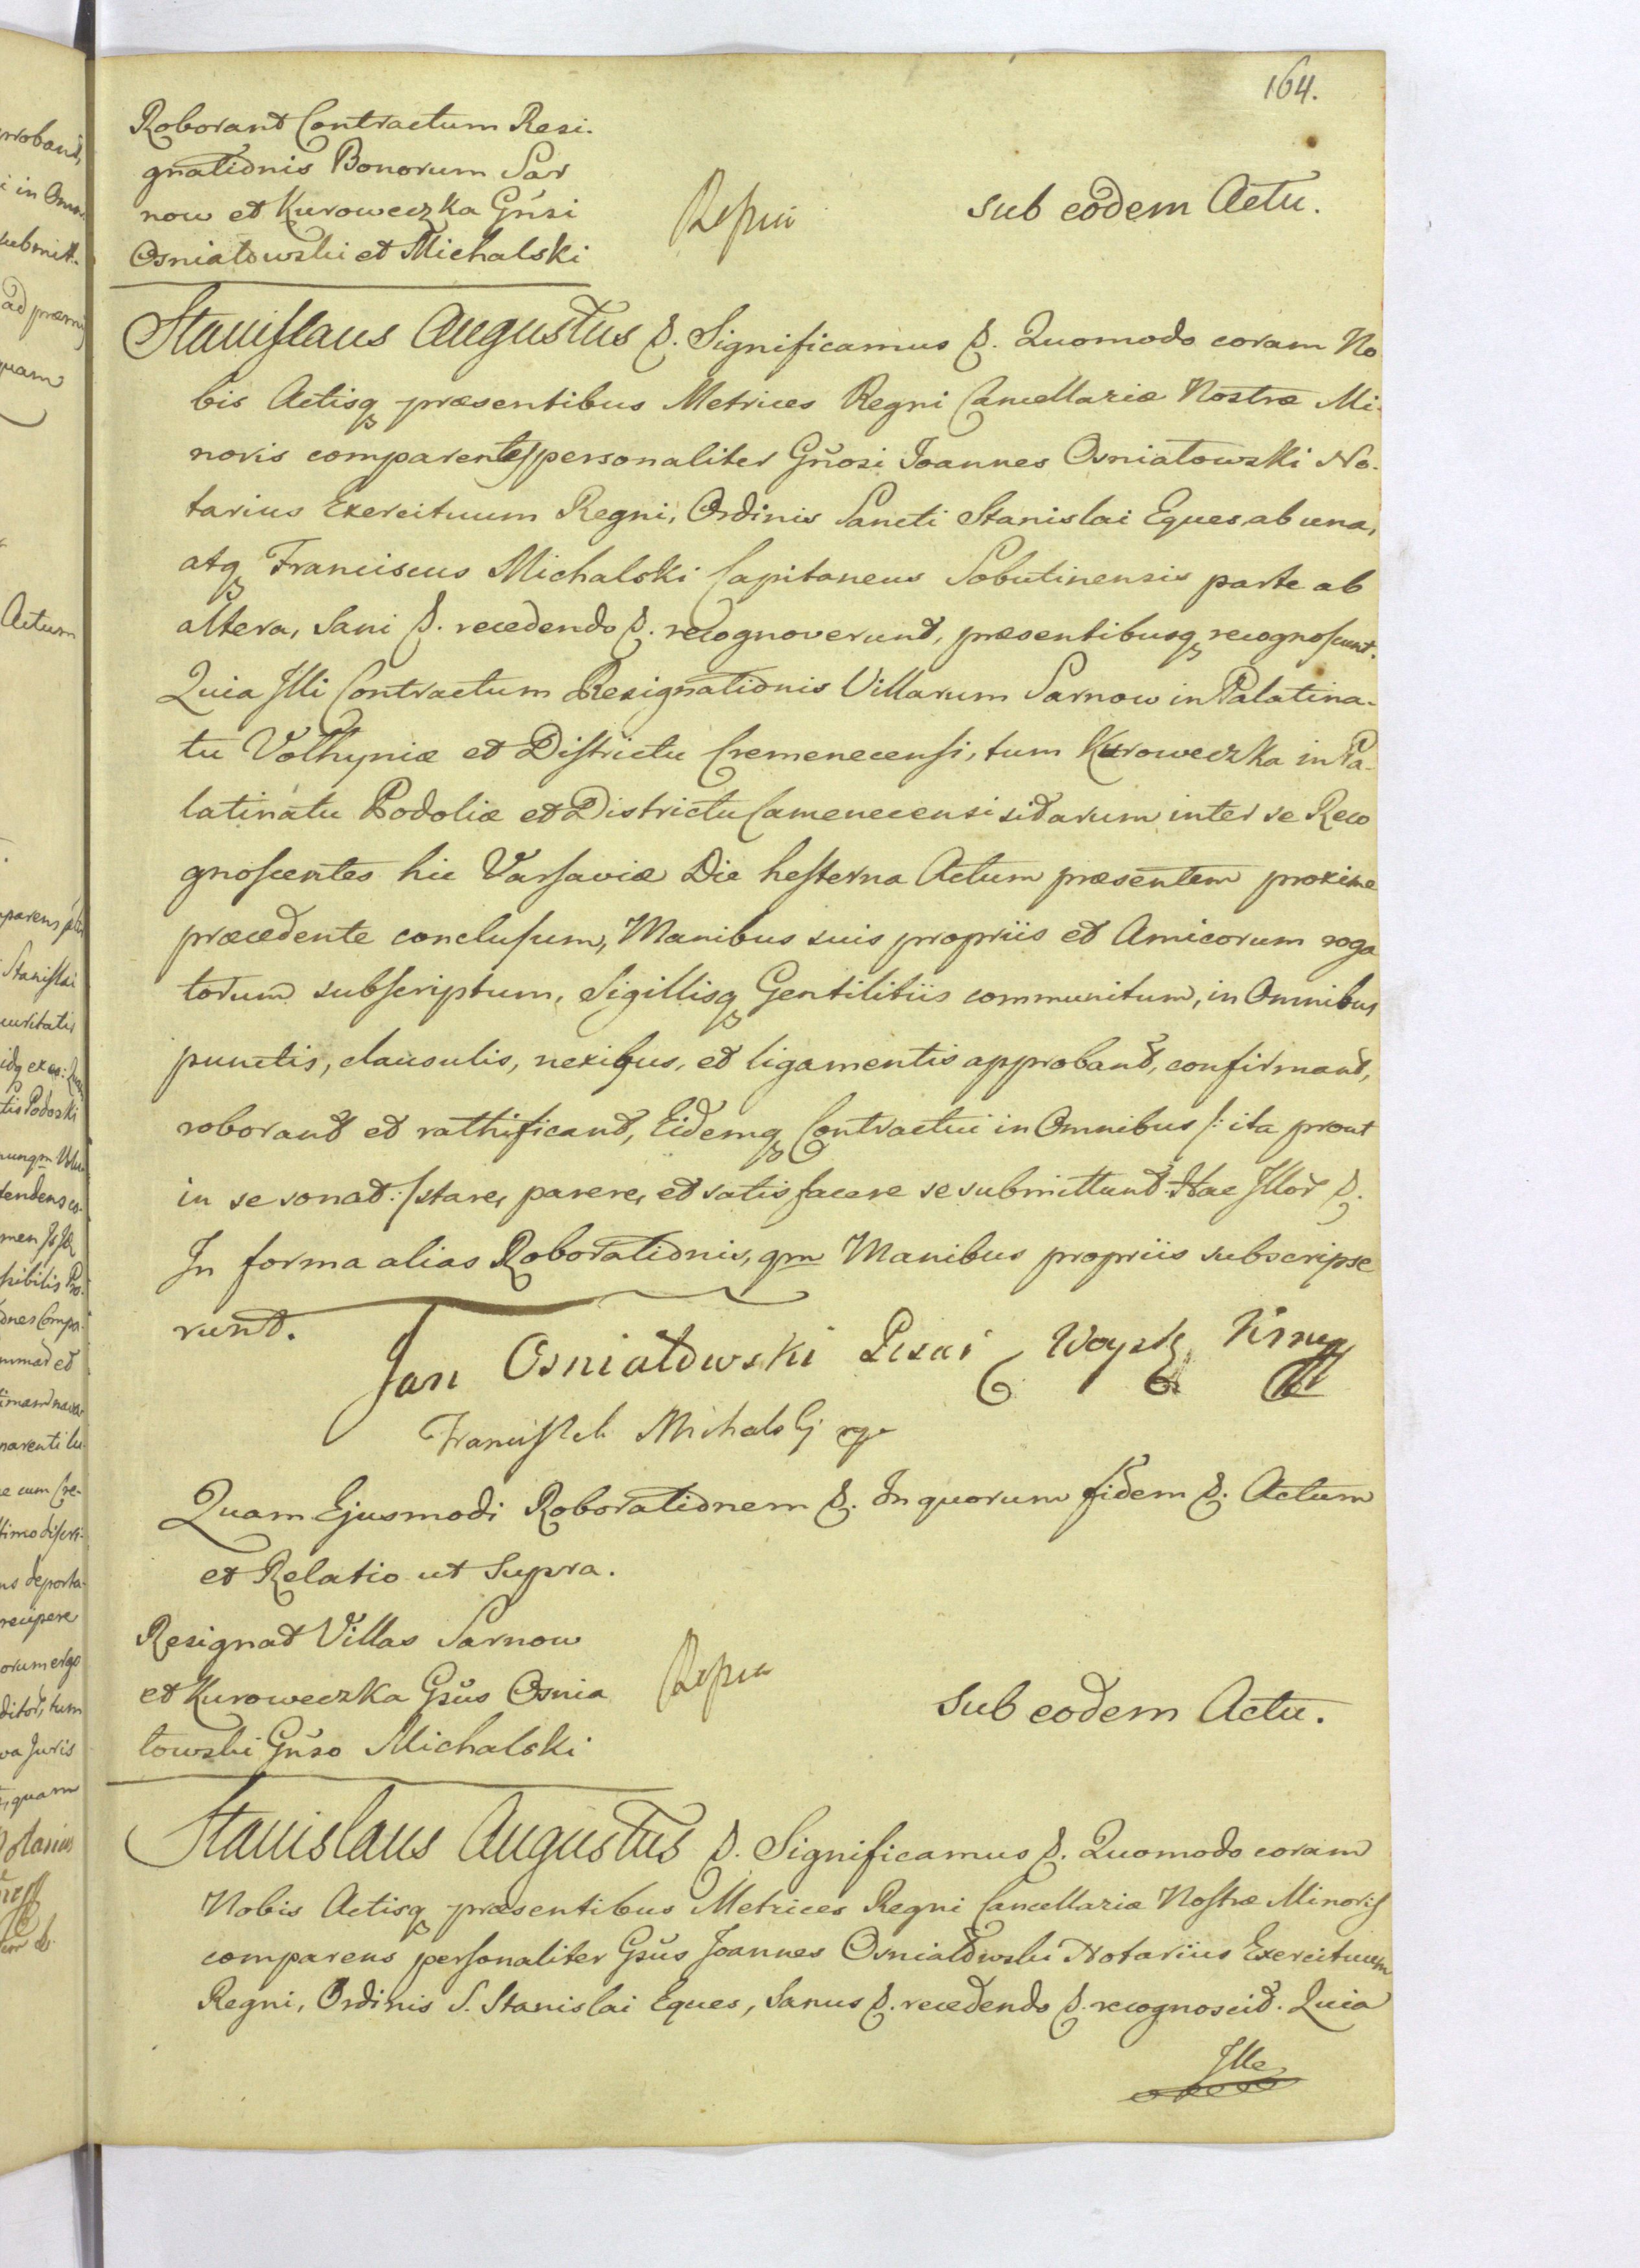 164.
Roborant Contractum Resi-
gnationis Bonorum Sar
now et Kuroweczka Gñsi
Osniatowski et Michalski
sub eodem Actu.
Stanislaus Augustus &. Significamus &. Quomodo coram No
bis Actisq præsentibus Metrices Regni Cancellariæ Nostræ Mi-
noris comparentes personaliter Gñosi Joannes Osniatowski No-
tarius Exercituum Regni, Ordinis Sancti Stanislai Eques ab una,
atq Franciscus Michalski Capitaneus Sobutinensis parte ab
altera, Sani &. recedendo &. recognoverunt, præsentibusq recognoscunt.
Quia Illi Contractum Resignationis Villarum Sarnow in Palatina-
tu Volhyniæ et Districtu Cremenecensi, tum Kuroweczka in Pa-
latinatu Podoliæ et Districtu Camenecensi sitarum inter se Reco
gnoscentes hic Varsaviæ Die hesterna Actum præsentem proxime
præcedente conclusum, Manibus suis propriis et Amicorum roga
torum subscriptum, Sigillisq Gentilitiis communitum, in Omnibus
punctis, clausulis, nexibus, et ligamentis approbant, confirmant,
roborant et rathificant, Eidemq Contractui in Omnibus /: ita prout
in se sonat :/ stare, parere, et satisfacere se submittunt. Hac Illor &.
In forma alias Roborationis, qm Manibus propriis subscripse
runt.
Jan Osniatowski Pisar Woysk
Franciszek Michalski
Quam Ejusmodi Roborationem &. In quorum fidem &. Actum
et Relatio ut Supra.
Resignat Villas Sarnow
et Kuroweczka Gsũs Osnia
towski Gñso Michalski
Sub eodem Actu.
Stanislaus Augustus &. Significamus &. Quomodo coram
Nobis Actisq præsentibus Metrices Regni Cancellariæ Nostræ Minoris
comparens personaliter Gsũs Joannes Osniatowski Notarius Exercituum
Regni, Ordinis S. Stanislai Eques, Sanus &. recedendo &. recognoscit. Quia
Ille